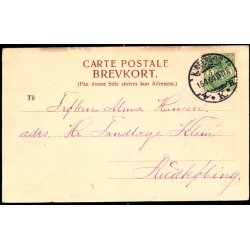 CARTE POSTALE
BREVKORT.
(Paa denne Side skrives kun Adressen.)
Til
Frøken Alma Hansen
adrs. Hr. Tandlæge Klem
Rudkøbing.